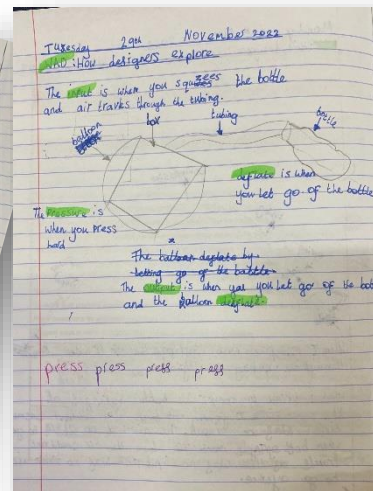 Tuesday 29th November 2022
WAO: How designers explore
The input is when you squzees the bottle
and air travels through the tubing.
balloon
box
tubing
bottle
deflate is when
you let go of the bottle
The Pressure is
when you press
hard
The balloon deflate by
letting go of the bottle
The output is when you let go of the bot
and the balloon
press press press press